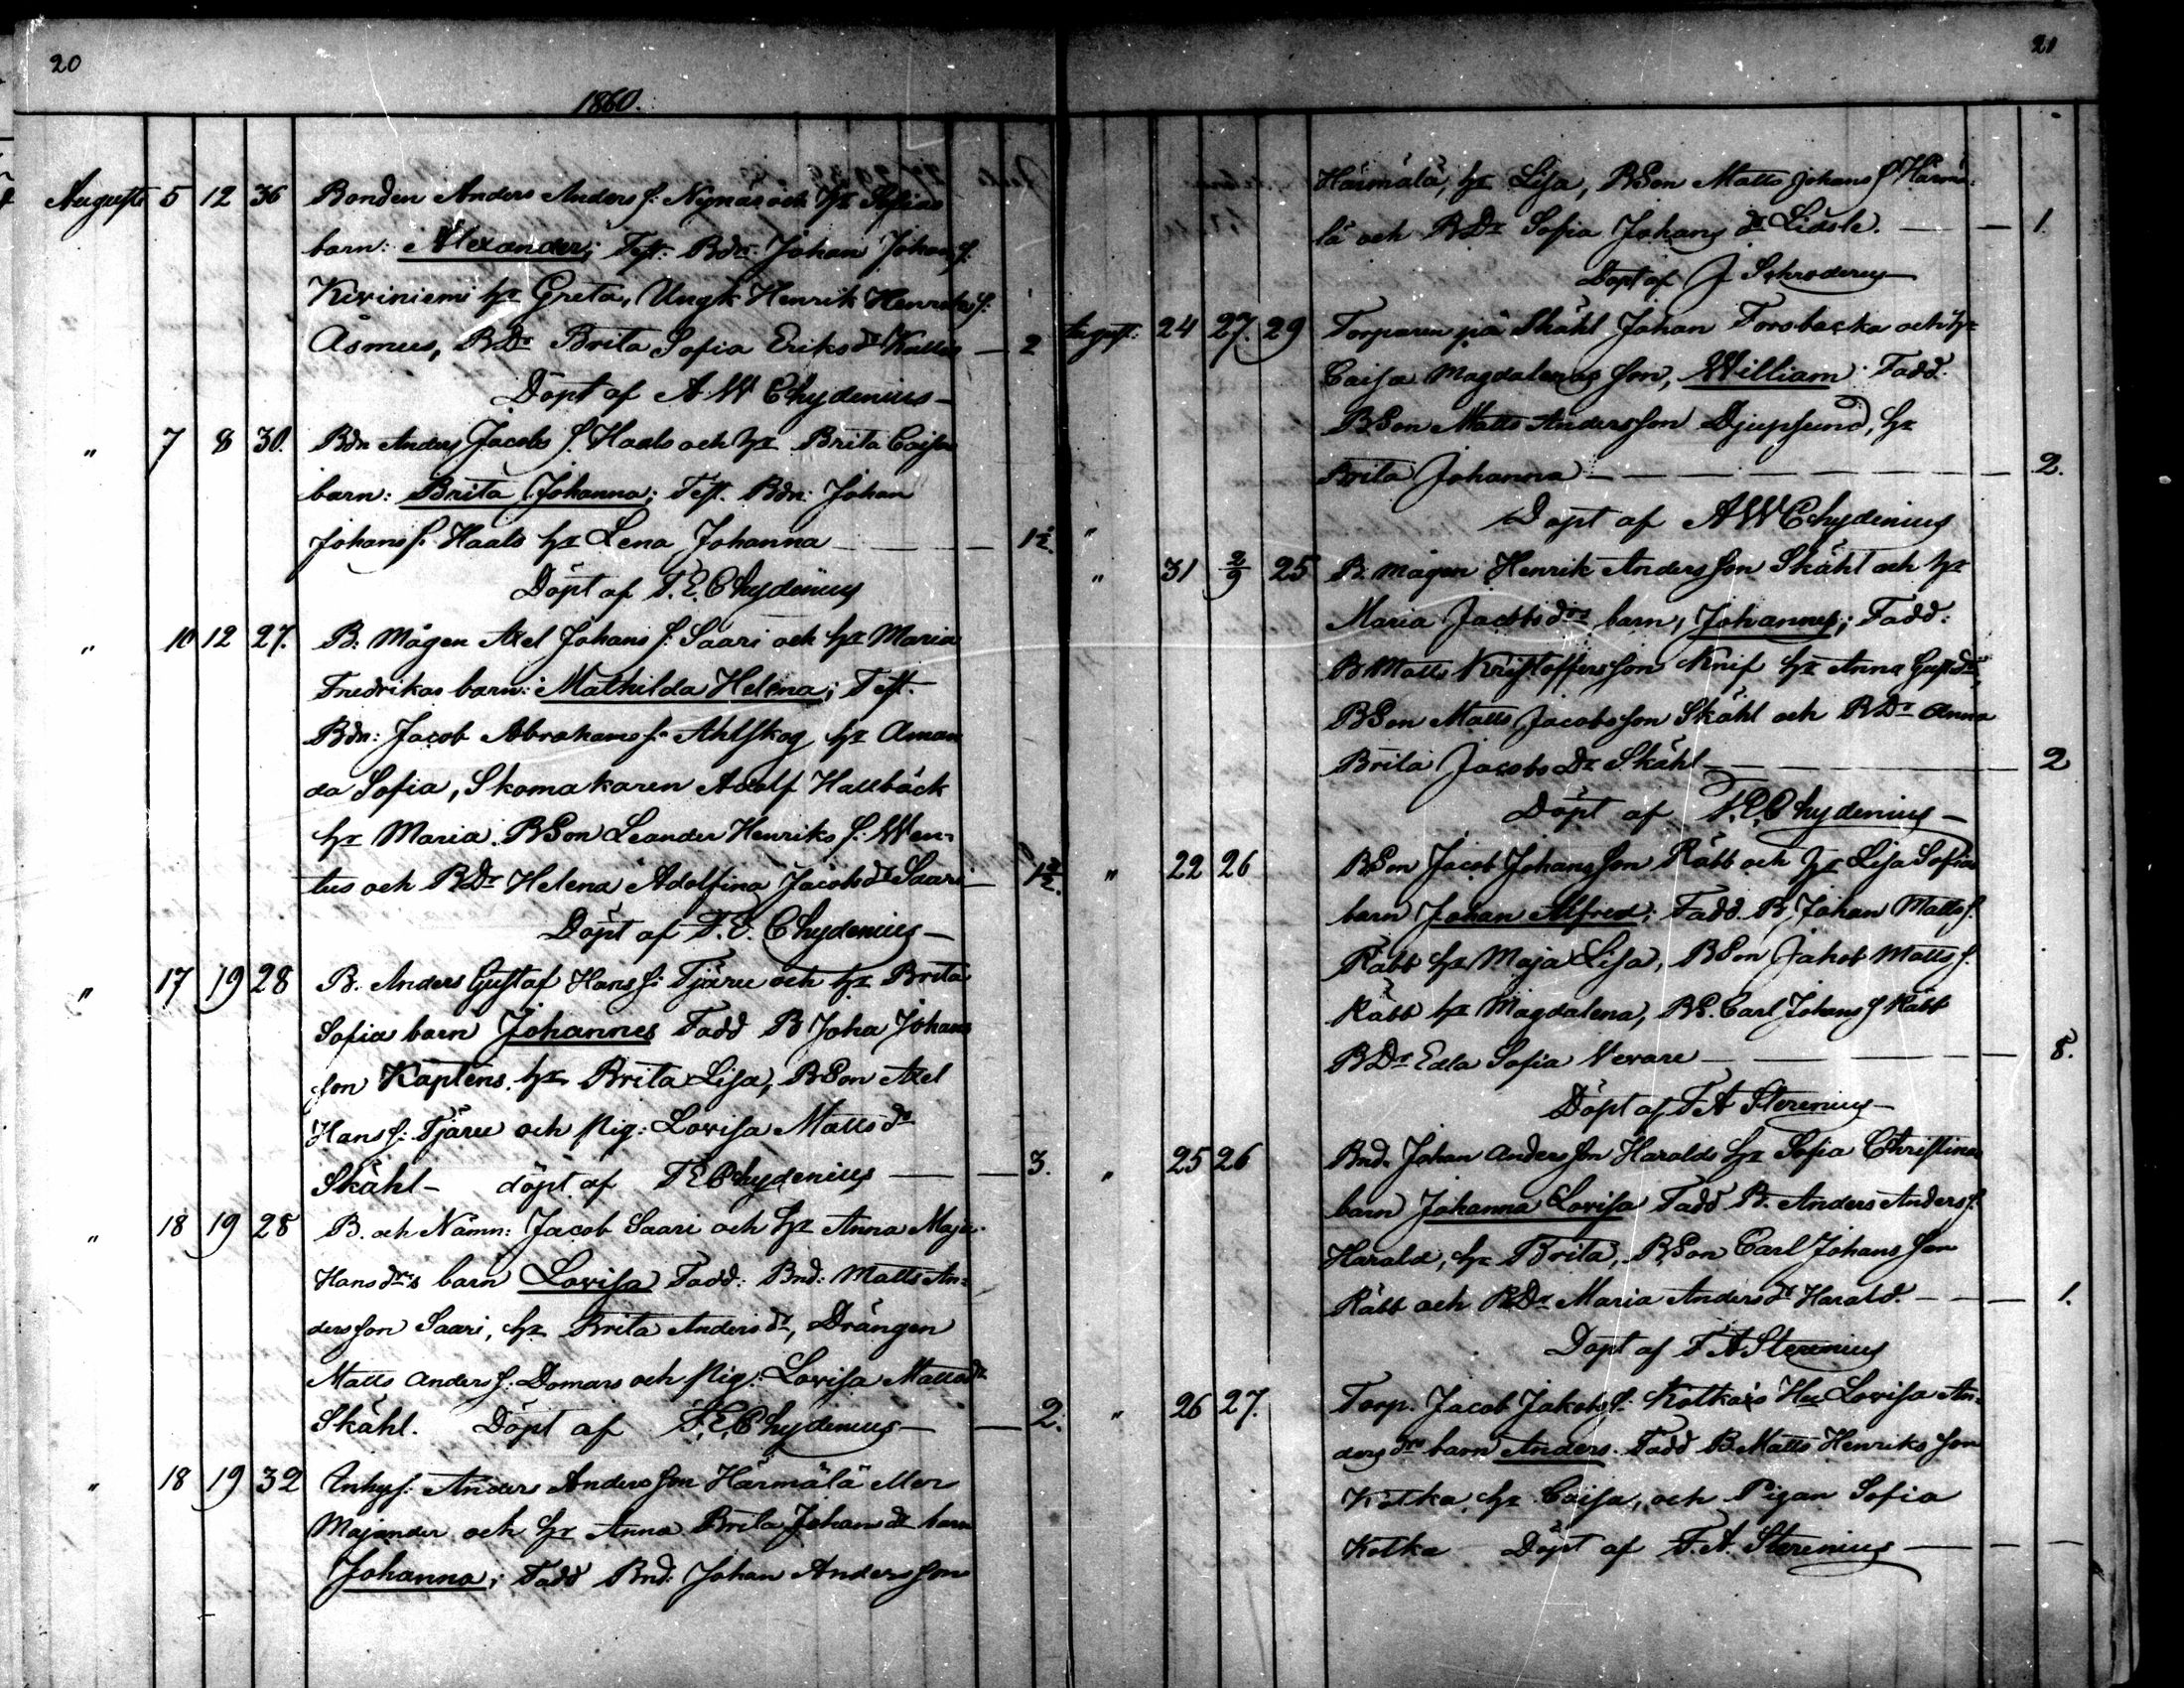 20
1860.
Augusti 5 12 36 Bonden Anders Anders s: Nynäs och h: Sofias
barn: Alexander; Test: Bdn: Johan Johans s.
Kiviniemi h: Greta, Ungk Henrik Henriks s:
Åsmus, BDr Brita Sofia Eriks dr — 2
Döpt af A W Chydenius —
" 7 8 30. Bdn Anders Jacobs s. Haals och h: Brita Caisas
barn: Brita Johanna; Test. Bdn: Johan
Johans s. Haals h: Lena Johanna — 1½.
Döpt af F. E. Chydenius
" 10 12 27. B: Mågen Axel Johans s. Saari och h: Maria
Fredrikas barn: Mathilda Helena; Test.
Bdn: Jacob Abrahams s. Ahlskog h: Aman
da Sofia, Skomakaren Adolf Hallbäck
h: Maria. BSon Leander Henriks s. Wen-
tus och BDr Helena Adolfina Jacobs dr Saari —
Döpt af F. E. Chydenius —
" 17 19 28 B. Anders Gustaf Hans s: Tjäru och h: Brita
Sofia barn Johannes Fadd B Joha Johans
son Kaptens. h: Brita Lisa, BSon Axel
Hans s: Tjäru och Pig: Lovisa Matts dr
Skåhl — döpt af F E Chydenius — 3.
" 18 19 28 B. och Nämn: Jacob Saari och h: Anna Maja
Hans drs barn Lovisa Fadd: Bnd: Matts An-
dersson Saari, h: Brita Anders dr, Drängen
Matts Anders s. Domars och Pig: Lovisa Matts dr
Skåhl. Döpt af F. E. Chydenius — 2.
" 18 19 32 Inhys: Anders Andersson Härmälä eller
Majander och h: Anna Brita Johans dr barn
Johanna; Fadd Bnd: Johan Andersson
21
Härmälä, h: Lisa, BSon Matts Johans s Härmä-
lä och BDr Sofia Johans dr — 1.
Döpt af J Schroderus
August: 24 27. 29 Torparen på Skåhl Johan Forsbacka och h:
Caisa Magdalenas son, William Fadd.
BSon Matts Andersson Djupsund, h:
Brita Johanna — 2.
Döpt af A W Chydenius
" 31 2/9 25 B. mågen Henrik Andersson Skåhl och h:
Maria Jacobs drs barn, Johannes; Fadd:
B Matts Kristoffersson Knif h: Anna Gust dr,
BSon Matts Jacobsson Skåhl och BDr Anna
Brita Jacobs Dr Skåhl — 2
Döpt af F. E. Chydenius —
" 22 26 BSon Jacob Johansson Räbb och h: Lisa Sofias
barn Johan Alfred; Fadd. B Johan Matts s.
Räbb h: Maja Lisa, BSon Jakob Matts s.
Räbb h: Magdalena, BS. Carl Johans s Räbb
BDr Edla Sofia Verare — 5.
Döpt af F A Sterenius —
" 25 26 Bnd. Johan Andersson Haralds h: Sofia Christinas
barn Johanna Lovisa Fadd B. Anders Anders s.
Harald, h: Brita, BSon Carl Johansson
Räbb och BDr Maria Anders dr Harald. — 1.
Döpt af F A Sterenius
" 26 27. Torp. Jacob Jakobs s: Kotkas Hu Lovisa An-
ders drs barn Anders. Fadd B Matts Henriksson
Kotka, h: Caisa, och Pigan Sofia
Kotka Döpt af F. A. Sterenius —